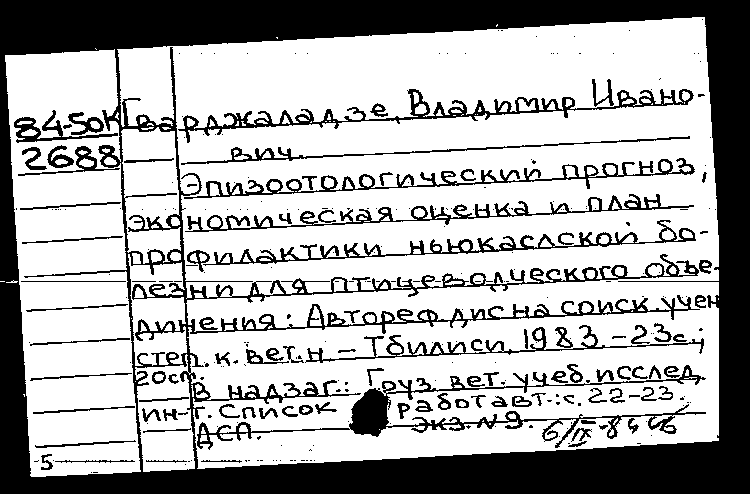 84-50К Гварджаладзе, Владимир Ивано-
2688 вич.
Эпизоотологический прогноз,
экономическая оценка и план
профилактики ньюкаслской бо-
лезни для птицеводческого объе-
динения: Автореф дис на соиск. учен
степ. к. вет. н – Тбилиси, 1983. – 23с.;
20см.
В надзаг.: Груз. вет. учеб. исслед.
ин-т. Список работ авт.: с. 22-23.
ДСП. экз. №9.
5